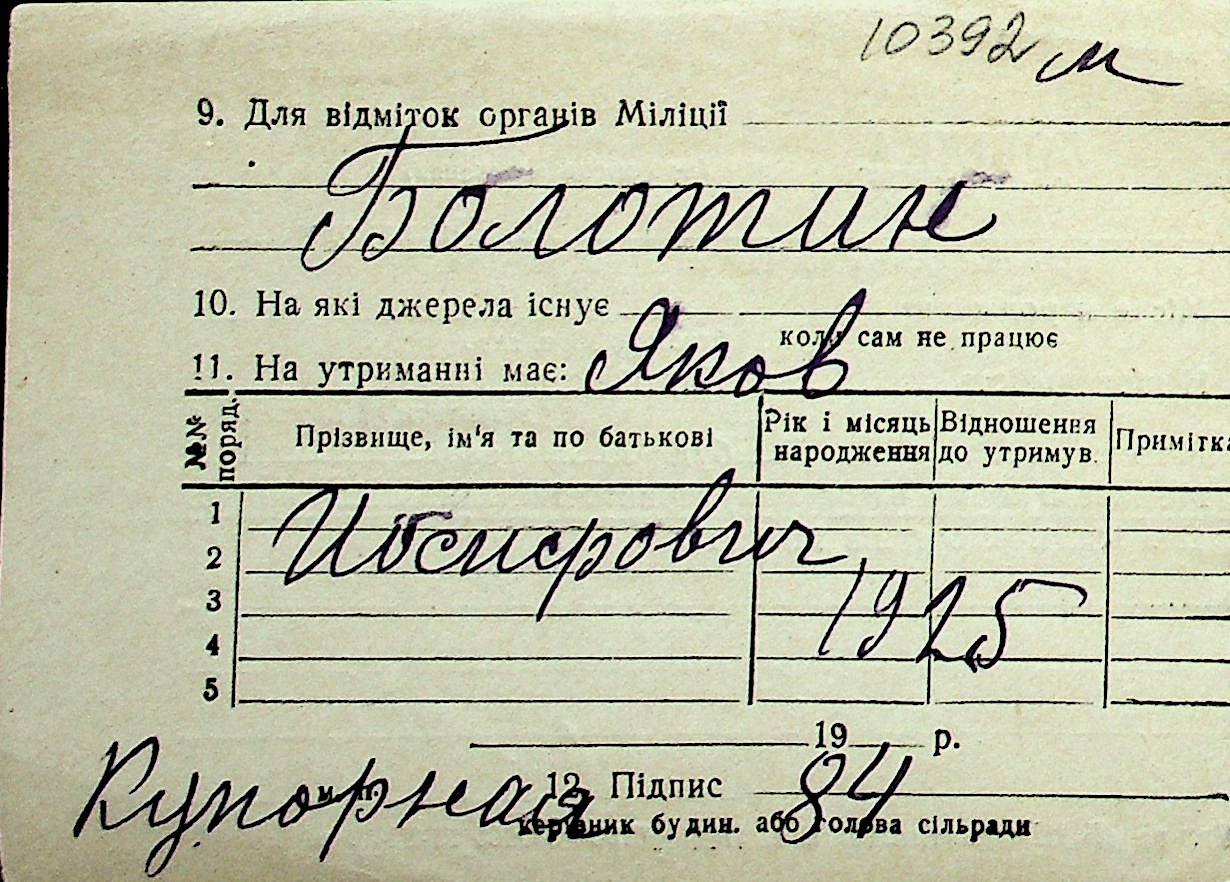 10392 м
9. Для відміток органів Міліції
Болотин
10. На які джерела існує
коли сам не працює
Яков
11. На утриманні має:
№№ поряд.
Прізвище, ім'я та по батькові
Рік і місяць народження
Відношення до утримув.
Примітка
1
Иосифович
2
3
1925
4
5
19 р.
84
м. п.
12. Підпис
Купорная
керівник будин. або голова сільради